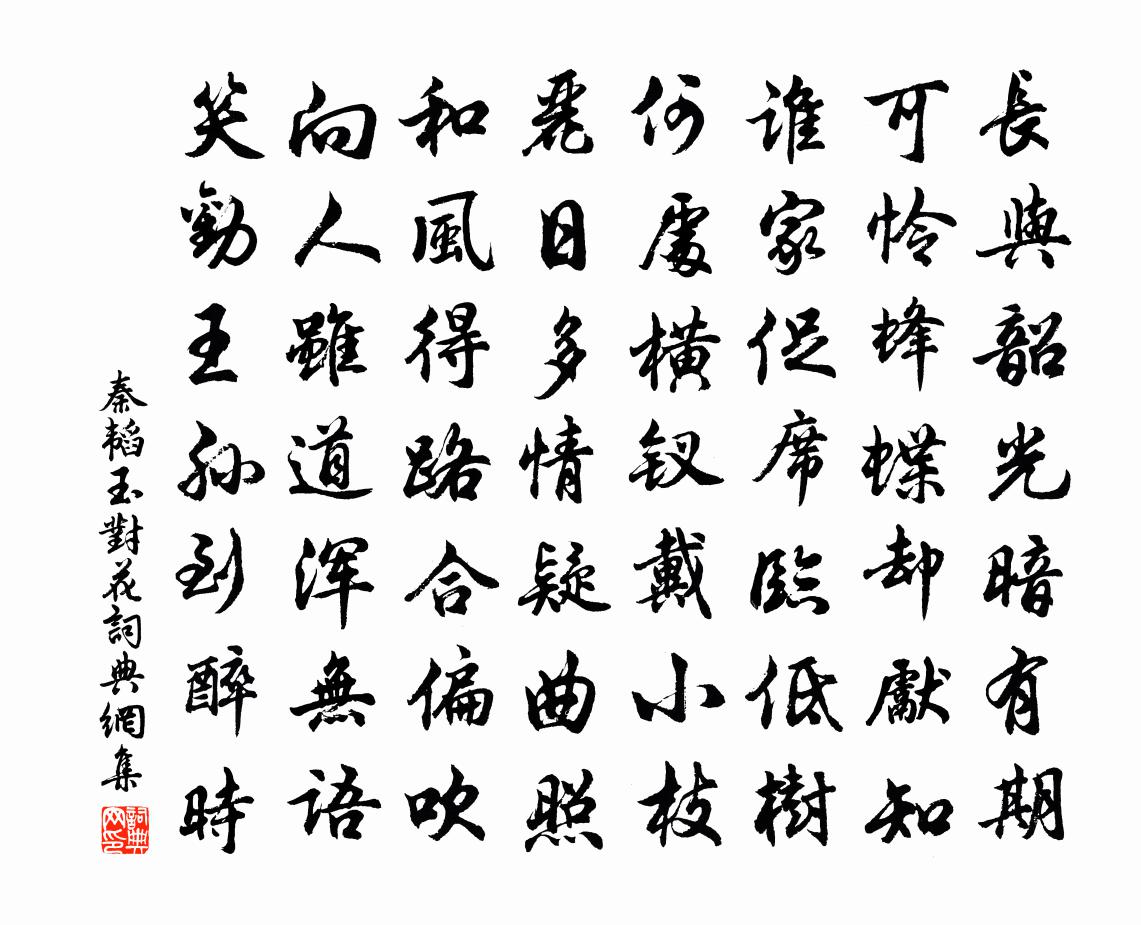 長與韶光暗有期
可怜蜂蝶却獻知
谁家促席臨低樹
何處横釵戴小枝
麗日多情疑曲照
和風得路合偏吹
向人雖道渾無語
笑勸王孫到醉時
秦韜玉對花詞典網集
詞典网印